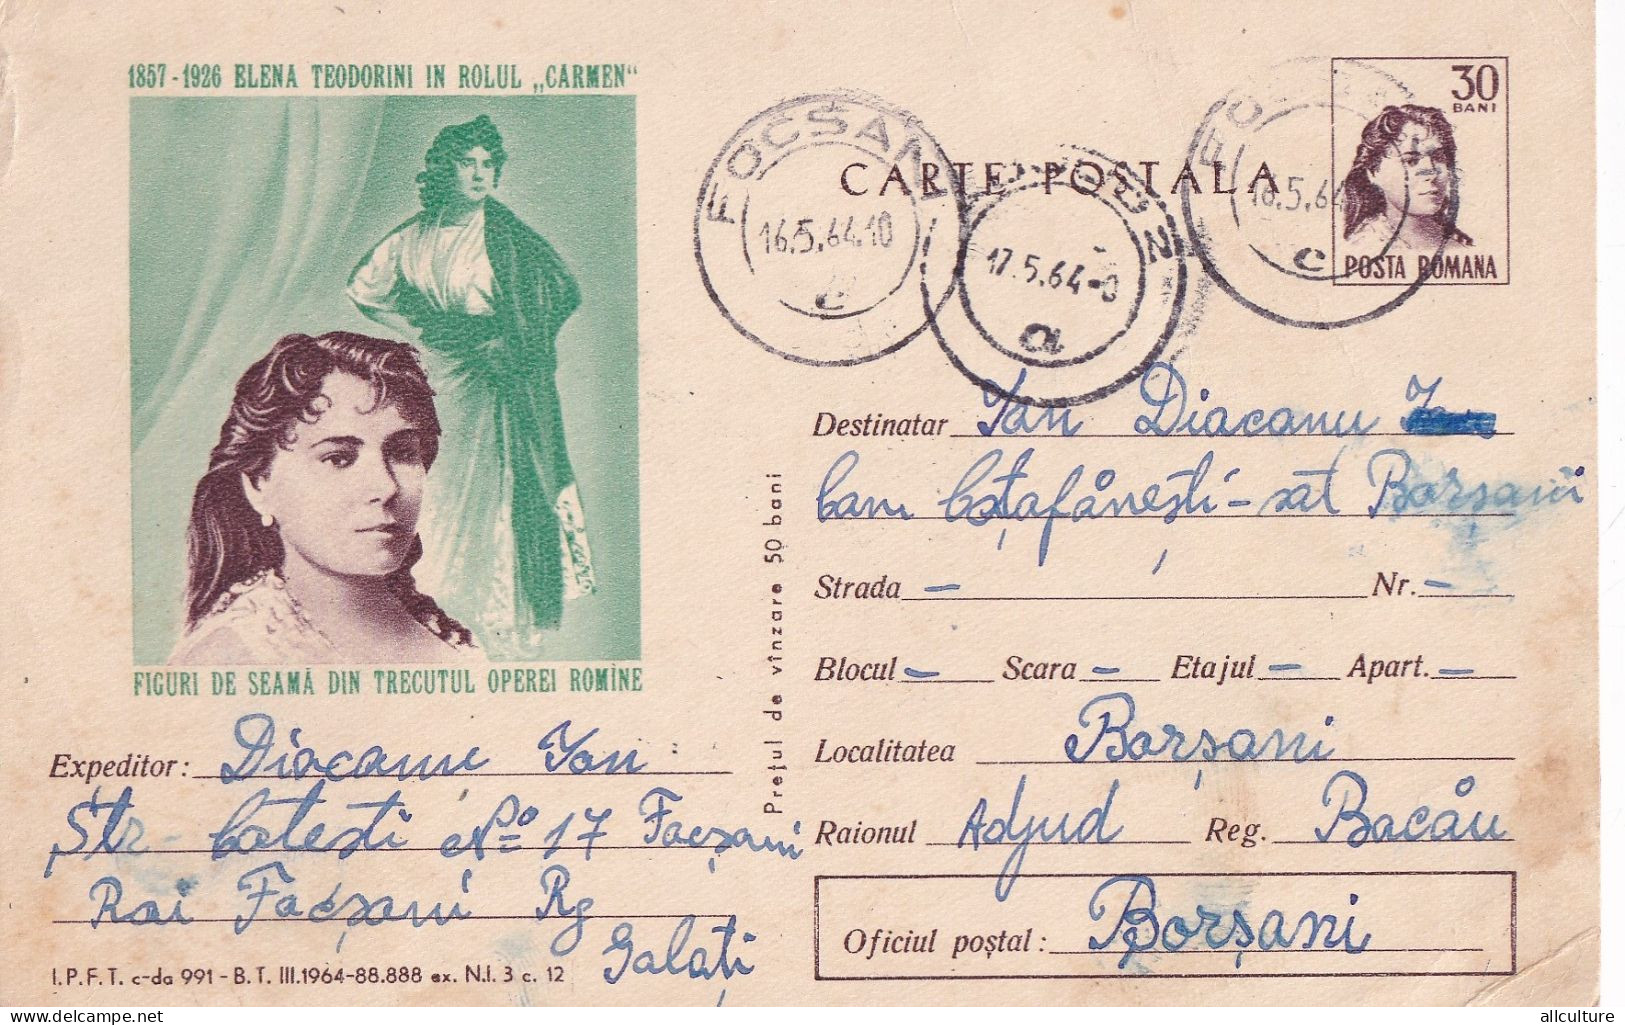 1857-1926 ELENA TEODORINI IN ROLUL „CARMEN"
FIGURI DE SEAMĂ DIN TRECUTUL OPEREI ROMÎNE
CARTE POSTALA
30
BANI
POSTA ROMANA
FOCȘANI
16.5.64.10
c
17.5.64-
a
16.5.64
c
Destinatar Ion Diaconu
com Coțofănești - sat Borșani
Strada - Nr. -
Blocul - Scara - Etajul - Apart. -
Localitatea Borșani
Raionul Adjud Reg. Bacău
Oficiul poștal: Borșani
Prețul de vînzare 50 bani
Expeditor: Diaconu Ion
Str - Cotești No 17 Focșani
Rai Focșani Rg
Galați
I.P.F.T. c-da 991 - B.T. III.1964-88.888 ex. N.I. 3 c. 12
allculture